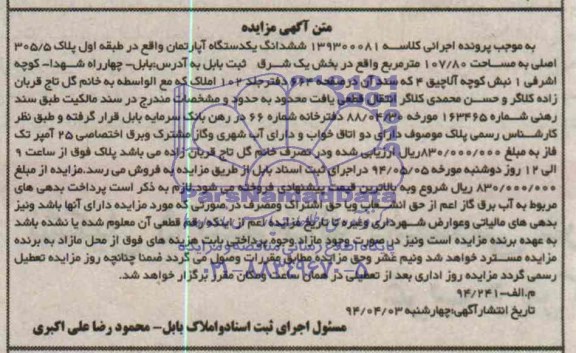 متن آگهی مزایده
به موجب پرونده اجرائی کلاسه ۱۳۹۳۰۰۰۸۱ ششدانگ یکدستگاه آپارتمان واقع در طبقه اول پلاک ۳۰۵/۵
اصلی به مساحت ۱۰۷/۸۰ مترمربع واقع در بخش یک شرق ثبت بابل به آدرس:بابل- چهارراه شهدا- کوچه
اشرفی ۱ نبش کوچه آلاچیق ۴ که سند آن در صفحه ۶۶۴ دفترجلد ۱۰۲ املاک که مع الواسطه به خانم گل تاج قربان
زاده کلاگر و حسن محمدی کلاگر انتقال قطعی یافت محدود به حدود و مشخصات مندرج در سند مالکیت طبق سند
رهنی شماره ۱۶۳۴۶۵ مورخه ۸۸/۰۴/۳۰ دفترخانه شماره ۶۶ در رهن بانک سرمایه بابل قرار گرفته و طبق نظر
کارشناس رسمی پلاک موصوف دارای دو اتاق خواب و دارای آب شهری وگاز مشترک وبرق اختصاصی ۲۵ آمپر تک
فاز به مبلغ ۸۳۰/۰۰۰/۰۰۰ریال ارزیابی شده ودر تصرف خانم گل تاج قربان زاده می باشد پلاک فوق از ساعت ۹
الی ۱۲ روز دوشنبه مورخه ۹۴/۰۵/۰۵ دراجرای ثبت اسناد بابل از طریق مزایده به فروش می رسد.مزایده از مبلغ
۸۳۰/۰۰۰/۰۰۰ ریال شروع وبه بالاترین قیمت پیشنهادی فروخته می شود.لازم به ذکر است پرداخت بدهی های
مربوط به آب برق گاز اعم از حق انشعاب ویا حق اشتراک ومصرف در صورتی که مورد مزایده دارای آنها باشد ونیز
بدهی های مالیاتی وعوارض شهرداری وغیره تا تاریخ مزایده اعم از اینکه رقم قطعی آن معلوم شده یا نشده باشد
به عهده برنده مزایده است ونیز در صورت وجود مازاد وجوه پرداختی بابت هزینه های فوق از محل مازاد به برنده
مزایده مسترد خواهد شد ونیم عشر وحق مزایده مطابق مقررات وصول می گردد ضمنا چنانچه روز مزایده تعطیل
رسمی گردد مزایده روز اداری بعد از تعطیلی در همان ساعت ومکان مقرر برگزار خواهد شد.
م.الف-۹۴/۲۴۱
تاریخ انتشارآگهی:چهارشنبه ۹۴/۰۴/۰۳
مسئول اجرای ثبت اسنادواملاک بابل- محمود رضا علی اکبری
ParsNamadData
۰۲۱-۸۸۳۴۹۶۷۰-۵